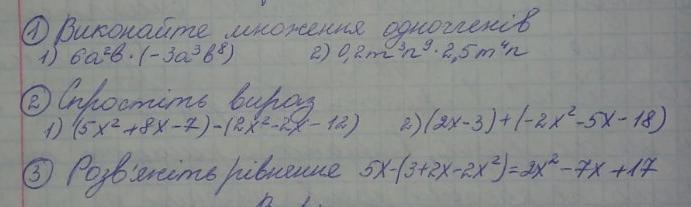 ① Виконайте множення одночленів
1) 6a²b·(-3a³b⁸) 2) 0,2m³n⁹·2,5m⁴n
② Спростіть вираз
1) (5x²+8x-7)-(2x²-2x-12) 2) (2x-3)+(-2x²-5x-18)
③ Розв'яжіть рівняння 5x-(3+2x-2x²)=2x²-7x+17